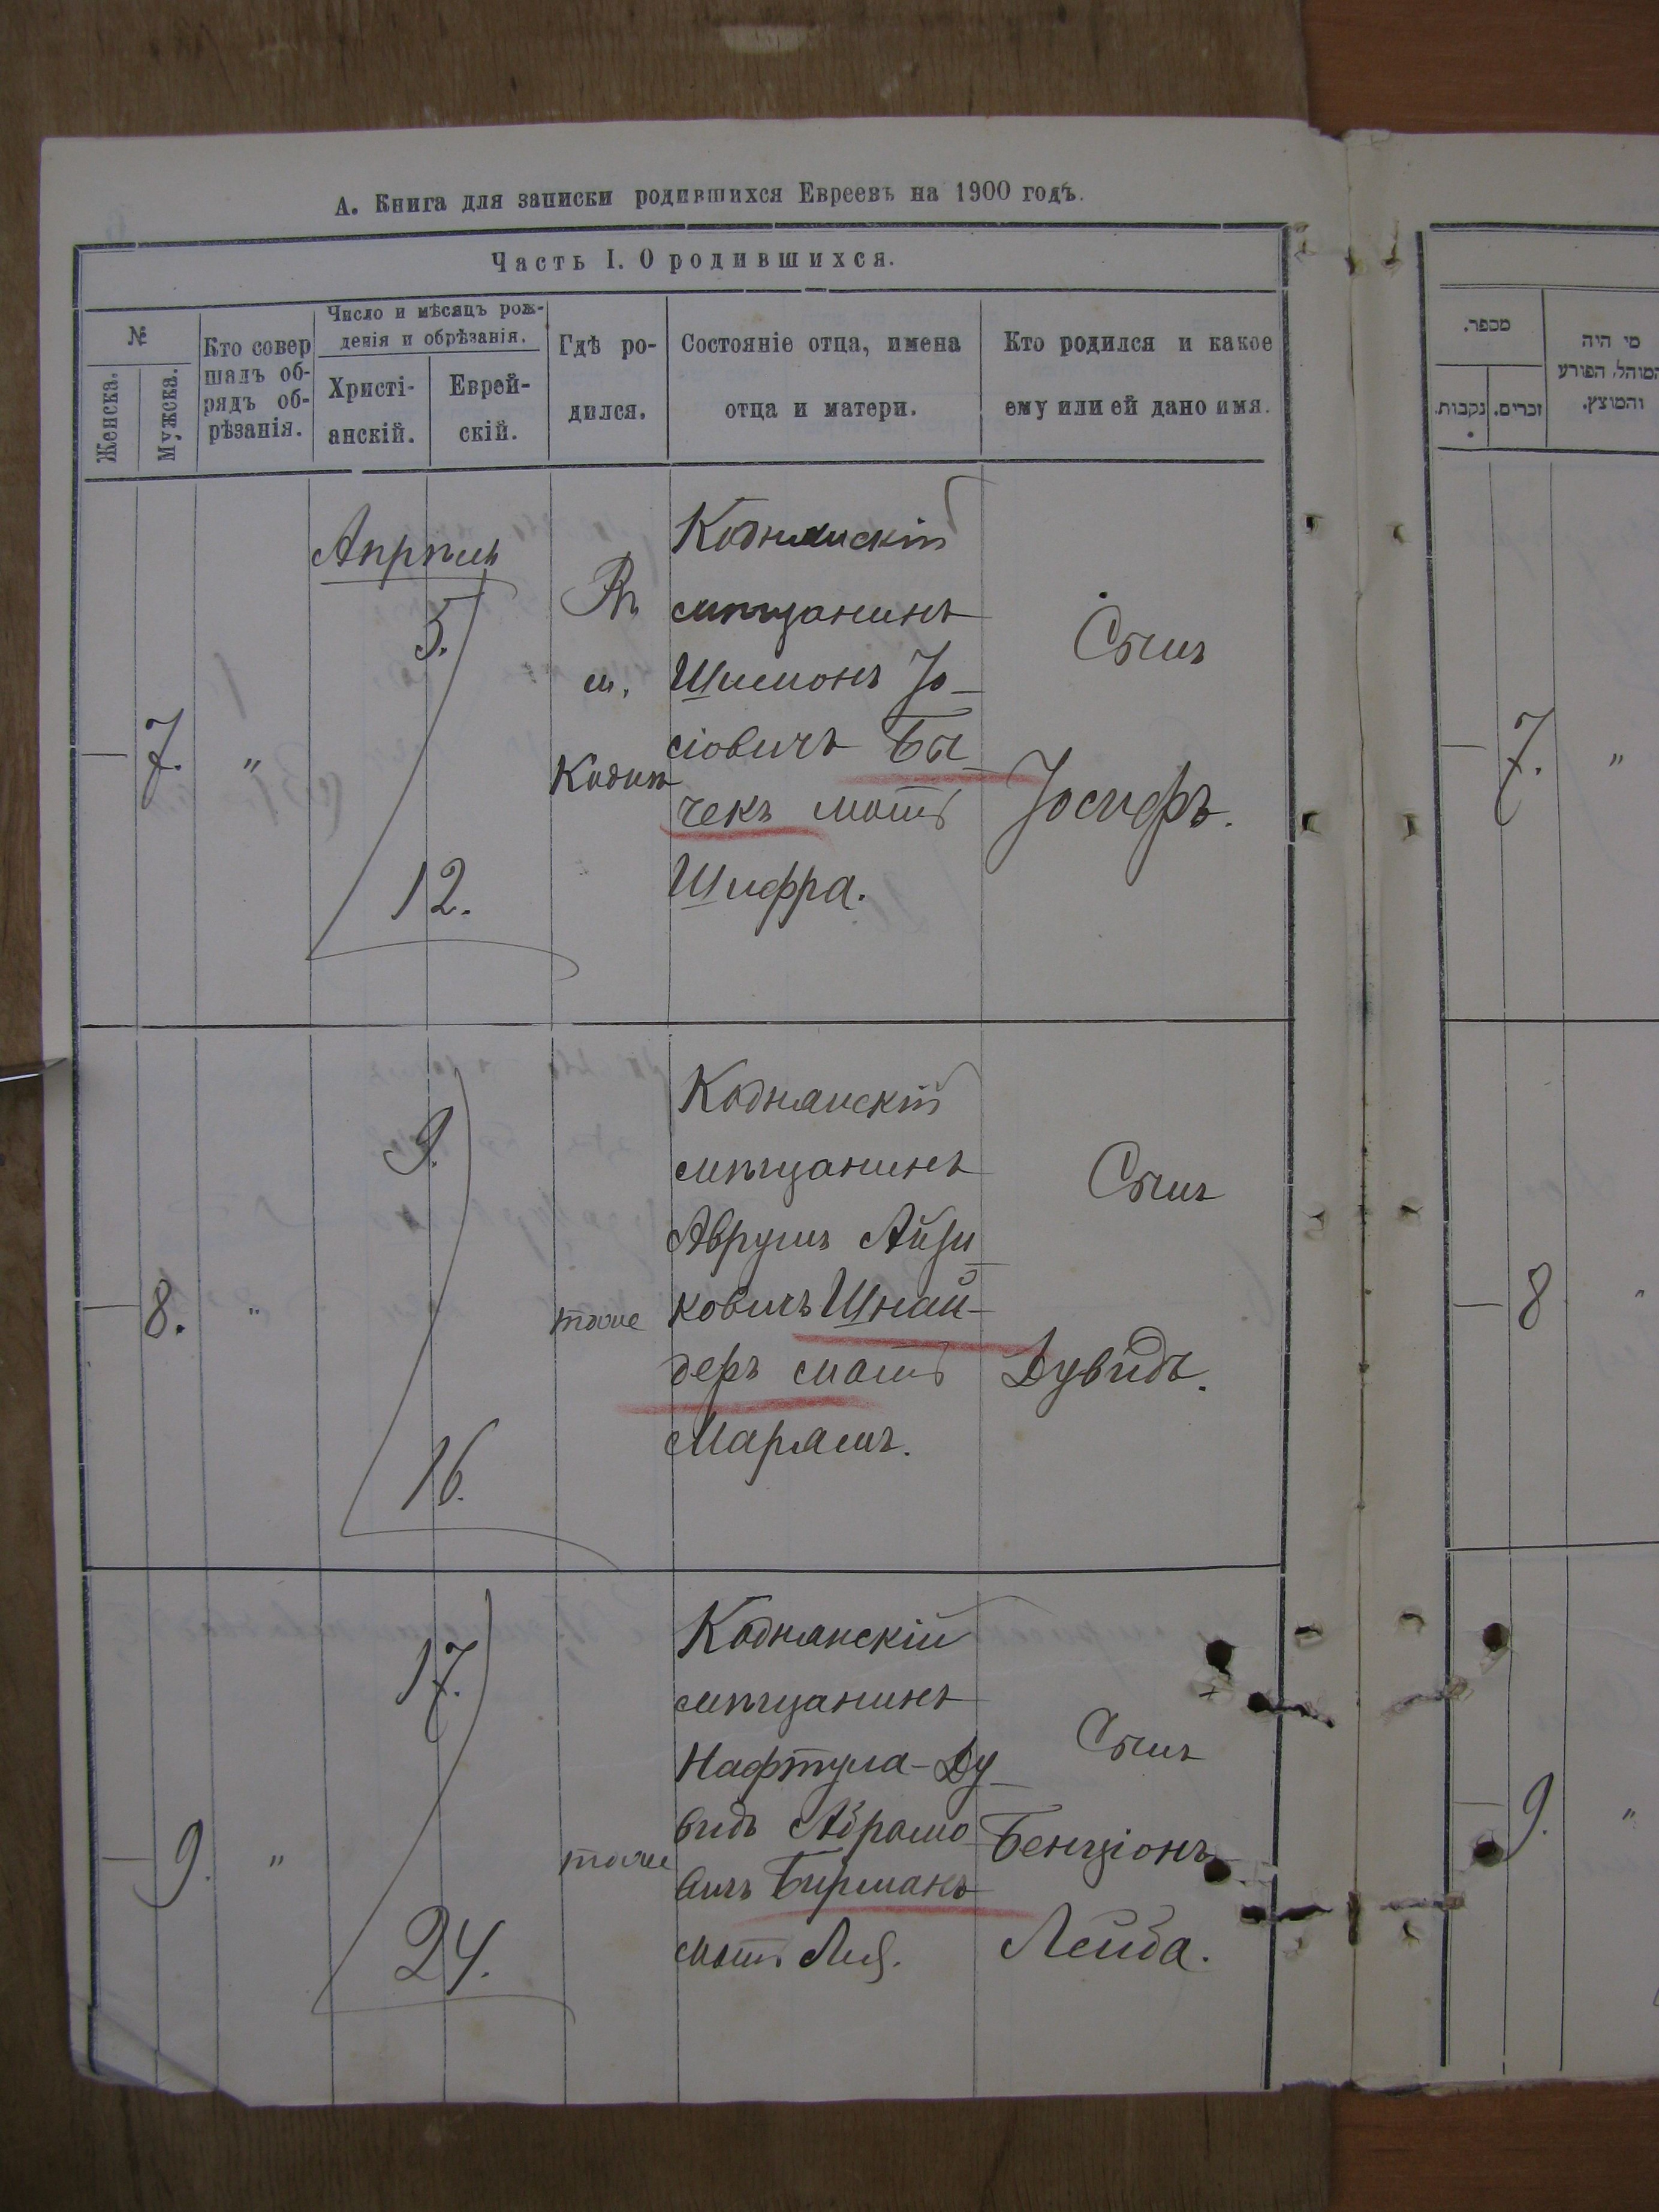 А. Книга для записки родившихся Евреевъ на 1900 годъ.
Часть I. О родившихся.
№
Женска.
Мужска.
Кто совер
шалъ об-
рядъ об-
рѣзанія.
Число и мѣсяцъ рож-
денія и обрѣзанія.
Христі-
анскій.
Еврей-
скій.
Гдѣ ро-
дился.
Состояніе отца, имена
отца и матери.
Кто родился и какое
ему или ей дано имя.
—
7.
"
Апрѣль
5.
12.
Въ
м.
Кодня
Коднянскій
мѣщанинъ
Шимонъ Іо-
сіовичъ Бы-
чекъ мать
Шифра.
Сынъ
Іосифъ.
—
8.
"
9.
16.
тоже
Коднянскій
мѣщанинъ
Аврумъ Айзи-
ковичъ Шнай-
деръ мать
Марямъ.
Сынъ
Дувидъ.
—
9.
"
17.
24.
тоже
Коднянскій
мѣщанинъ
Нафтула-Ду-
видъ Абрамо-
вичъ Бирманъ
мать Лея.
Сынъ
Бенціонъ-
Лейба.
מספר.
נקבות.
זכרים.
מי היה
המוהל, הפורע
והמוצץ.
—
7.
"
—
8
"
—
9.
"